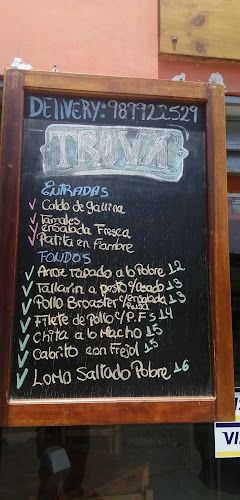 DELIVERY: 989922529
TRIVIA
ENTRADAS
Caldo de gallina
Tamales
ensalada Fresca
Patita en fiambre
FONDOS
Arroz Tapado a lo Pobre 12
Tallarin a pesto c/Asado 13
Pollo Broaster c/ensalada Rusa 13
Filete de Pollo c/P.Fs 14
Chita a lo Macho 15
Cabrito con Frejol 15
Lomo Saltado Pobre 16
VI
VIS